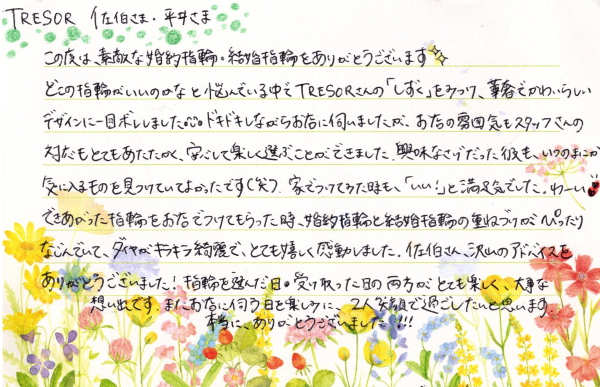 TRESOR 佐伯さま・平井さま
この度は、素敵な婚約指輪・結婚指輪をありがとうございます
どこの指輪がいいのかなと悩んでいる中でTRESORさんの「しずく」をみつけ、華奢でかわいらしい
デザインに一目ボレしました。ドキドキしながらお店に伺いましたが、お店の雰囲気もスタッフさんの
対応もとてもあたたかく、安心して楽しく選ぶことができました。興味なさげだった彼も、いつのまにか
気に入るものを見つけていてよかったです(笑)家でつけてみた時も、「いい!」と満足気でした。わーい
できあがった指輪をお店でつけてもらった時、婚約指輪と結婚指輪の重ねづけがぴったり
なじんでいて、ダイヤがキラキラ綺麗で、とても嬉しく感動しました。佐伯さん、沢山のアドバイスを
ありがとうございました!指輪を選んだ日・受け取った日の両方がとても楽しく、大事な
想い出です。またお店に伺う日を楽しみに、2人笑顔で過ごしたいと思います。
本当に、ありがとうございました!!!